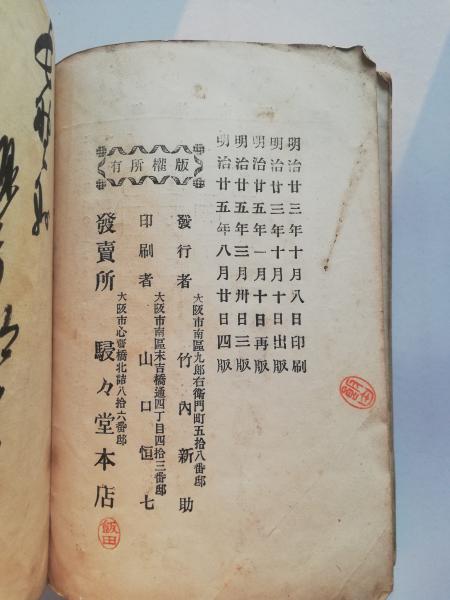 明治廿三年十月八日印刷
明治廿三年十月十日出版
明治廿五年一月十日再版
明治廿五年三月卅日三版
明治廿五年八月廿日四版
版權所有
大阪市南區九郎右衛門町五拾八番邸
發行者 竹內新助
大阪市南區末吉橋通四丁目四拾三番邸
印刷者 山口恒七
大阪市心齋橋北詰八拾六番邸
發賣所 駸々堂本店
飯田